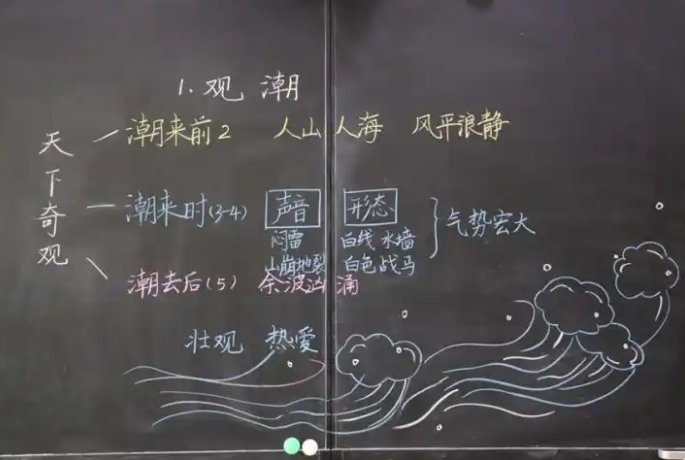 1.观 潮
天下奇观
潮来前2 人山人海 风平浪静
潮来时(3-4) 声音 形态 气势宏大
闷雷 白线 水墙
山崩地裂 白色战马
潮去后(5) 余波汹涌
壮观 热爱